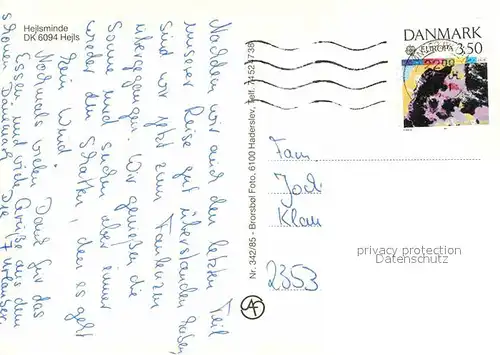 Hejlsminde
DK 6094 Hejls
Nachdem wir auch den letzten Teil
unserer Reise gut überstanden haben,
sind wir jetzt zum Faulenzen
übergegangen. Wir genießen die
Sonne und suchen aber immer
wieder den Schatten, denn es geht
kein Wind.
Nochmals vielen Dank für das
Essen und viele Grüße aus dem
schönen Dänemark Die 7 Urlauber.
Nr. 342/85 - Brorsbøl Foto, 6100 Haderslev, Telf. 7452 4738
DANMARK
EUROPA
3.50
Fam.
Joch
Klau
2353
privacy protection
Datenschutz